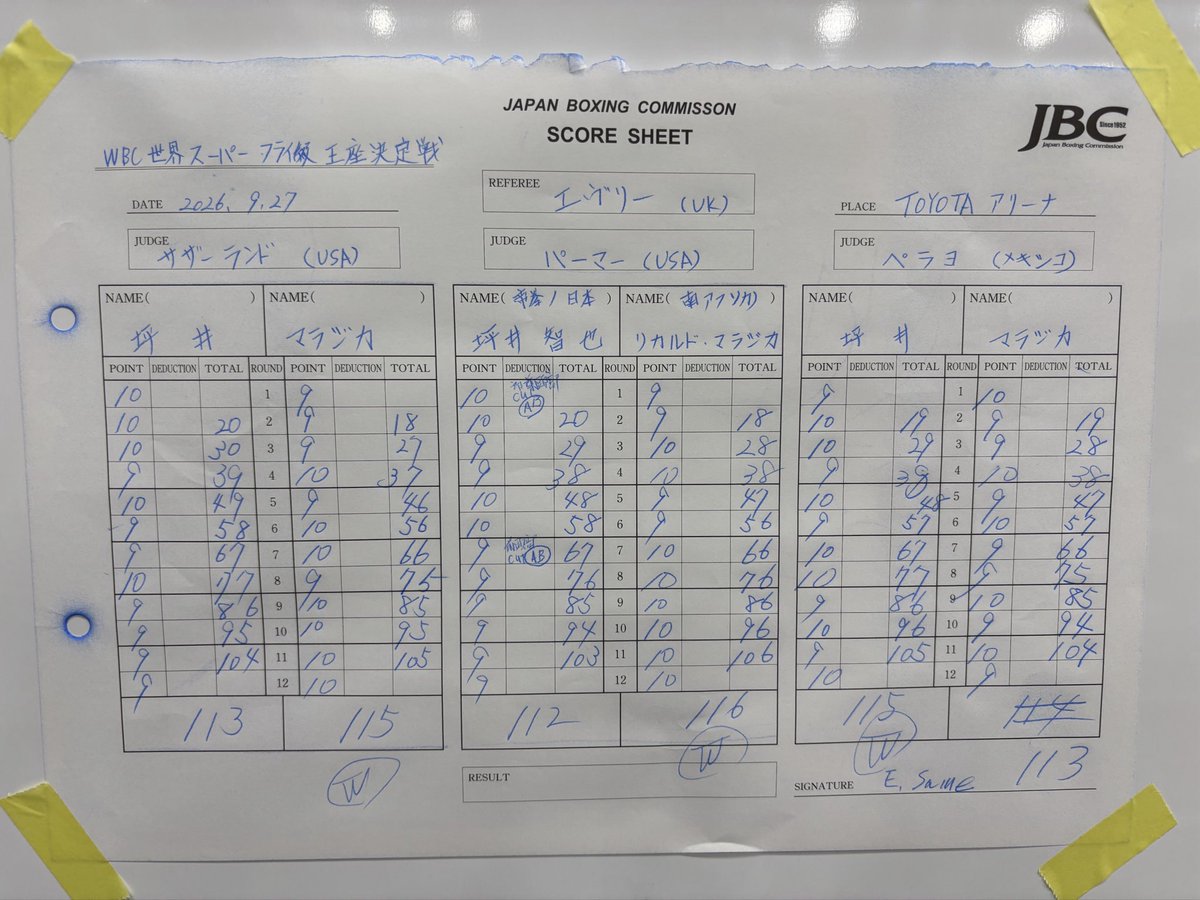 JAPAN BOXING COMMISSON
SCORE SHEET
JBC Since1952
Japan Boxing Commission
WBC世界スーパーフライ級 王座決定戦
DATE 2026. 9.27
REFEREE エヴリー (UK)
PLACE TOYOTA アリーナ
JUDGE サザーランド (USA)
JUDGE パーマー (USA)
JUDGE ペラヨ (メキシコ)
NAME( ) NAME( ) NAME( /日本 ) NAME( 南アフリカ ) NAME( ) NAME( )
坪井 マラジカ 坪井智也 リカルド・マラジカ 坪井 マラジカ
POINT DEDUCTION TOTAL ROUND POINT DEDUCTION TOTAL POINT DEDUCTION TOTAL ROUND POINT DEDUCTION TOTAL POINT DEDUCTION TOTAL ROUND POINT DEDUCTION TOTAL
10 1 9 10 CUT AB 1 9 9 1 10
10 20 2 9 18 10 20 2 9 18 10 19 2 9 19
10 30 3 9 27 9 29 3 10 28 10 29 3 9 28
9 39 4 10 37 9 38 4 10 38 9 38 4 10 38
10 49 5 9 46 10 48 5 9 47 10 48 5 9 47
9 58 6 10 56 10 58 6 9 56 9 57 6 10 57
9 67 7 10 66 9 CUT AB 67 7 10 66 10 67 7 9 66
10 77 8 9 75 9 76 8 10 76 10 77 8 9 75
9 86 9 10 85 9 85 9 10 86 9 86 9 10 85
9 95 10 10 95 9 94 10 10 96 10 96 10 9 94
9 104 11 10 105 9 103 11 10 106 9 105 11 10 104
9 12 10 9 12 10 10 12 9
113 115 112 116 115 114
W W W 113
RESULT
SIGNATURE E. Some